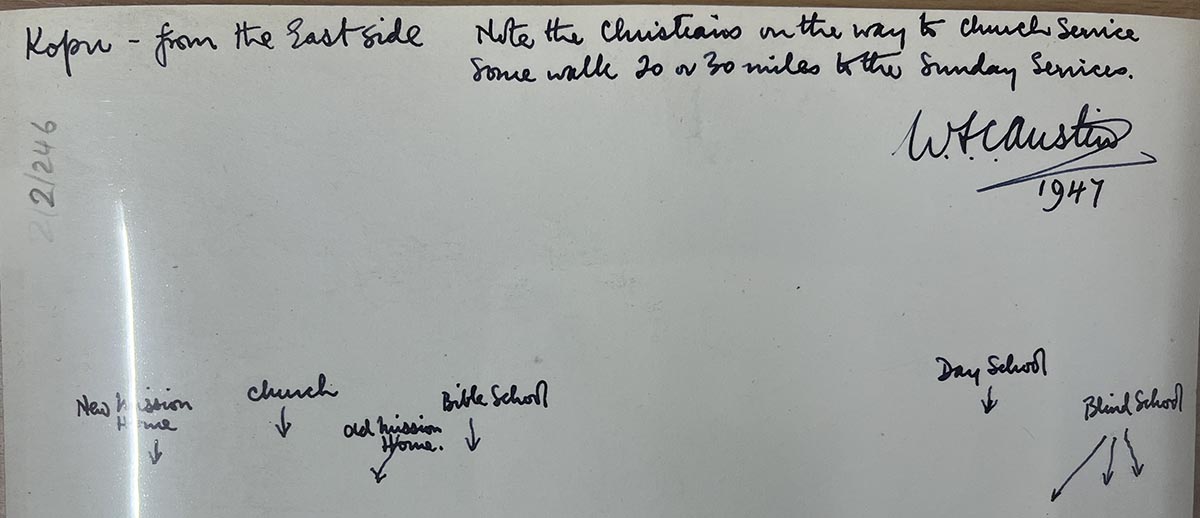 Kopu - from the East side
Note the Christians on the way to Church Service
Some walk 20 or 30 miles to the Sunday Services.
W.F.C. Austin
1947
2/2/246
New Mission
Home
Church
Old Mission
Home.
Bible School
Day School
Blind School